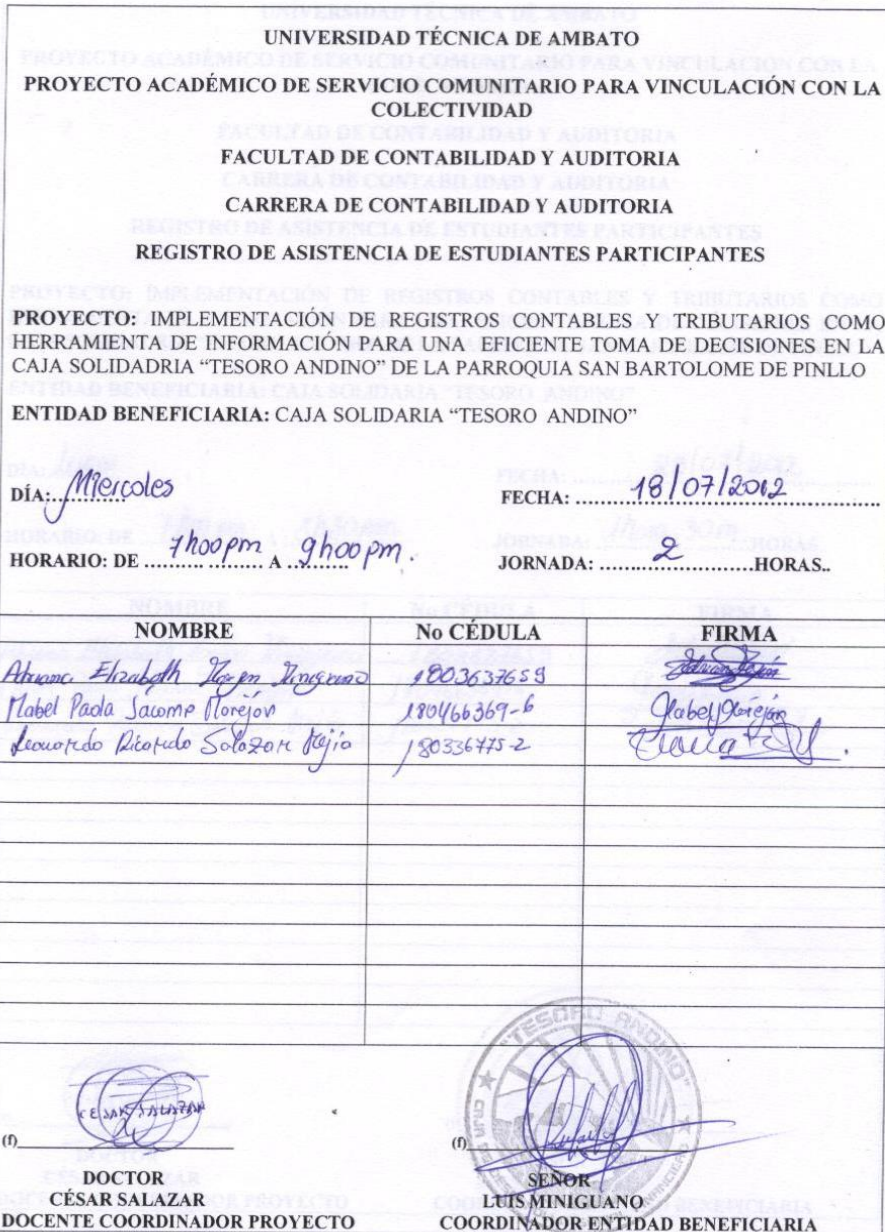 UNIVERSIDAD TÉCNICA DE AMBATO
PROYECTO ACADÉMICO DE SERVICIO COMUNITARIO PARA VINCULACIÓN CON LA
COLECTIVIDAD
FACULTAD DE CONTABILIDAD Y AUDITORIA
CARRERA DE CONTABILIDAD Y AUDITORIA
REGISTRO DE ASISTENCIA DE ESTUDIANTES PARTICIPANTES
PROYECTO: IMPLEMENTACIÓN DE REGISTROS CONTABLES Y TRIBUTARIOS COMO
HERRAMIENTA DE INFORMACIÓN PARA UNA EFICIENTE TOMA DE DECISIONES EN LA
CAJA SOLIDADRIA “TESORO ANDINO” DE LA PARROQUIA SAN BARTOLOME DE PINLLO
ENTIDAD BENEFICIARIA: CAJA SOLIDARIA “TESORO ANDINO”
DÍA: Miercoles FECHA: 18/07/2012
HORARIO: DE 7h00pm A 9h00pm. JORNADA: 2 HORAS..
NOMBRE No CÉDULA FIRMA
Adriana Elizabeth 1803637659
Mabel Paola Jacome Morejon 180466369-6
Leonardo Ricardo Salazar Mejia 180336775-2
"TESORO ANDINO"
CESAR SALAZAR
(f) (f)
DOCTOR SEÑOR
CÉSAR SALAZAR LUIS MINIGUANO
DOCENTE COORDINADOR PROYECTO COORDINADOR ENTIDAD BENEFICIARIA